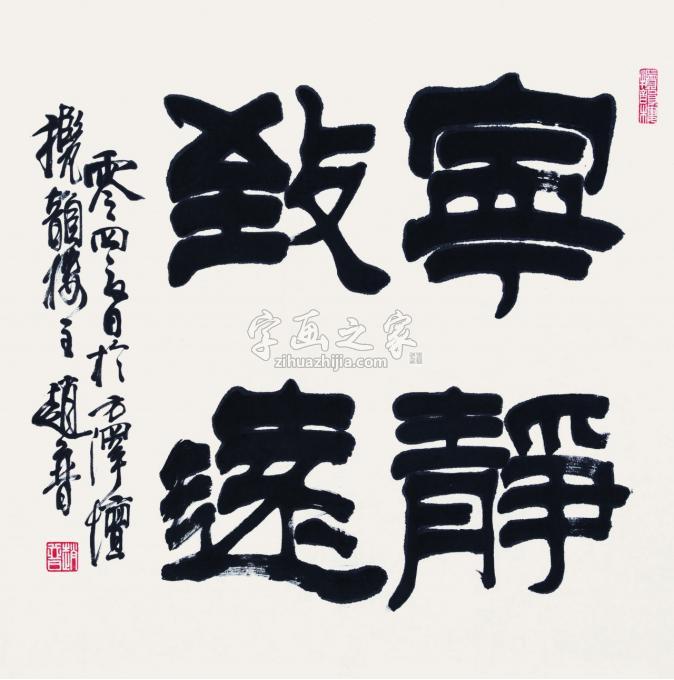 寧靜
致遠
零四言日於方澤壇
攬韻樓主趙普
字画之家
zihuazhijia.com